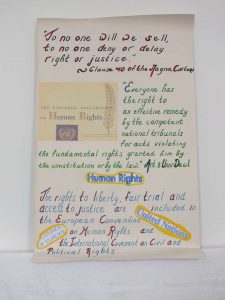 "To no one will we sell,
to no one deny or delay
right or justice."
Clause 40 of the Magna Carta
THE UNIVERSAL DECLARATION
OF Human Rights
"Everyone has
the right to
an effective remedy
by the competent
national tribunals
for acts violating
the fundamental rights granted him by
the constitution or by the law." Art 8
Human Rights
The rights to liberty, fair trial and
access to justice are included in
the European Convention
on Human Rights and
the International Covenant on Civil and
Political Rights
United Nations